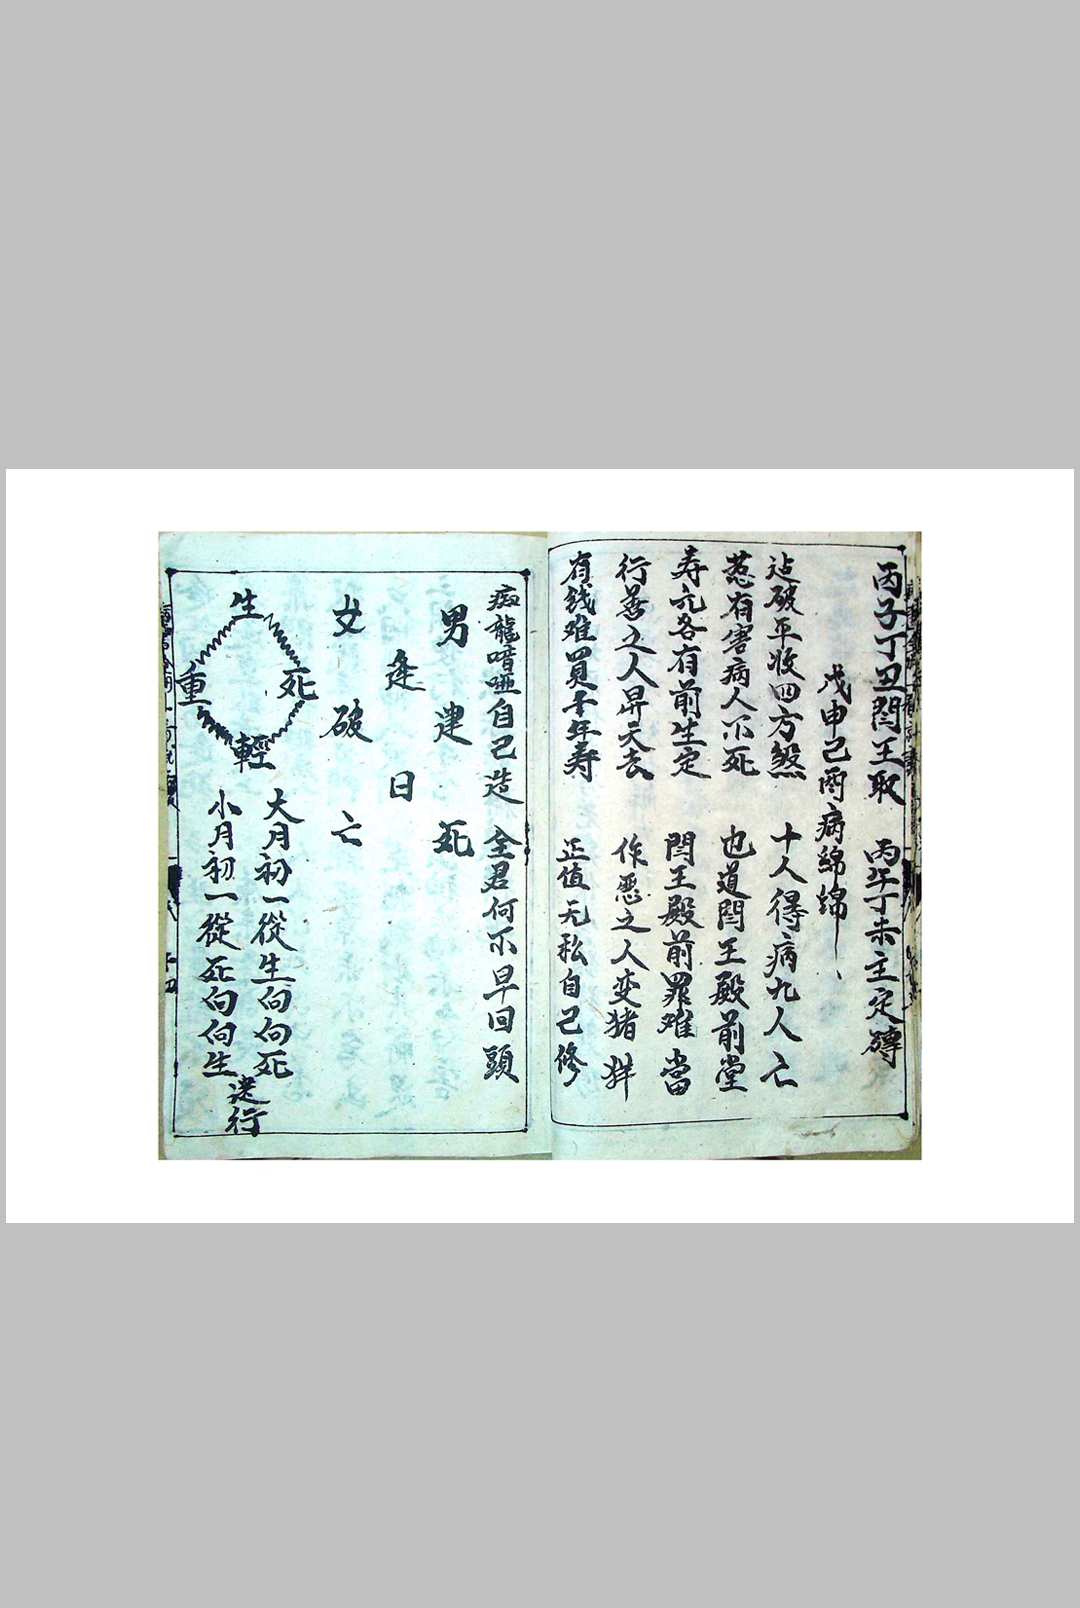 丙子丁丑閻王取 丙午丁未主定磚
戊申己酉病綿綿
迠破平收四方煞 十人得病九人亡
惹有害病人不死 也道閻王殿前堂
寿元各有前生定 閻王殿前罪难當
行善之人昇天去 作恶之人变猪牂
有銭难買千年寿 正值无私自己修
痴龍喑啞自己造 全君何不早回頭
男建死
逢日
女破亡
生
死
重
輕
大月初一從生向向死
小月初一從死向向生
逆行